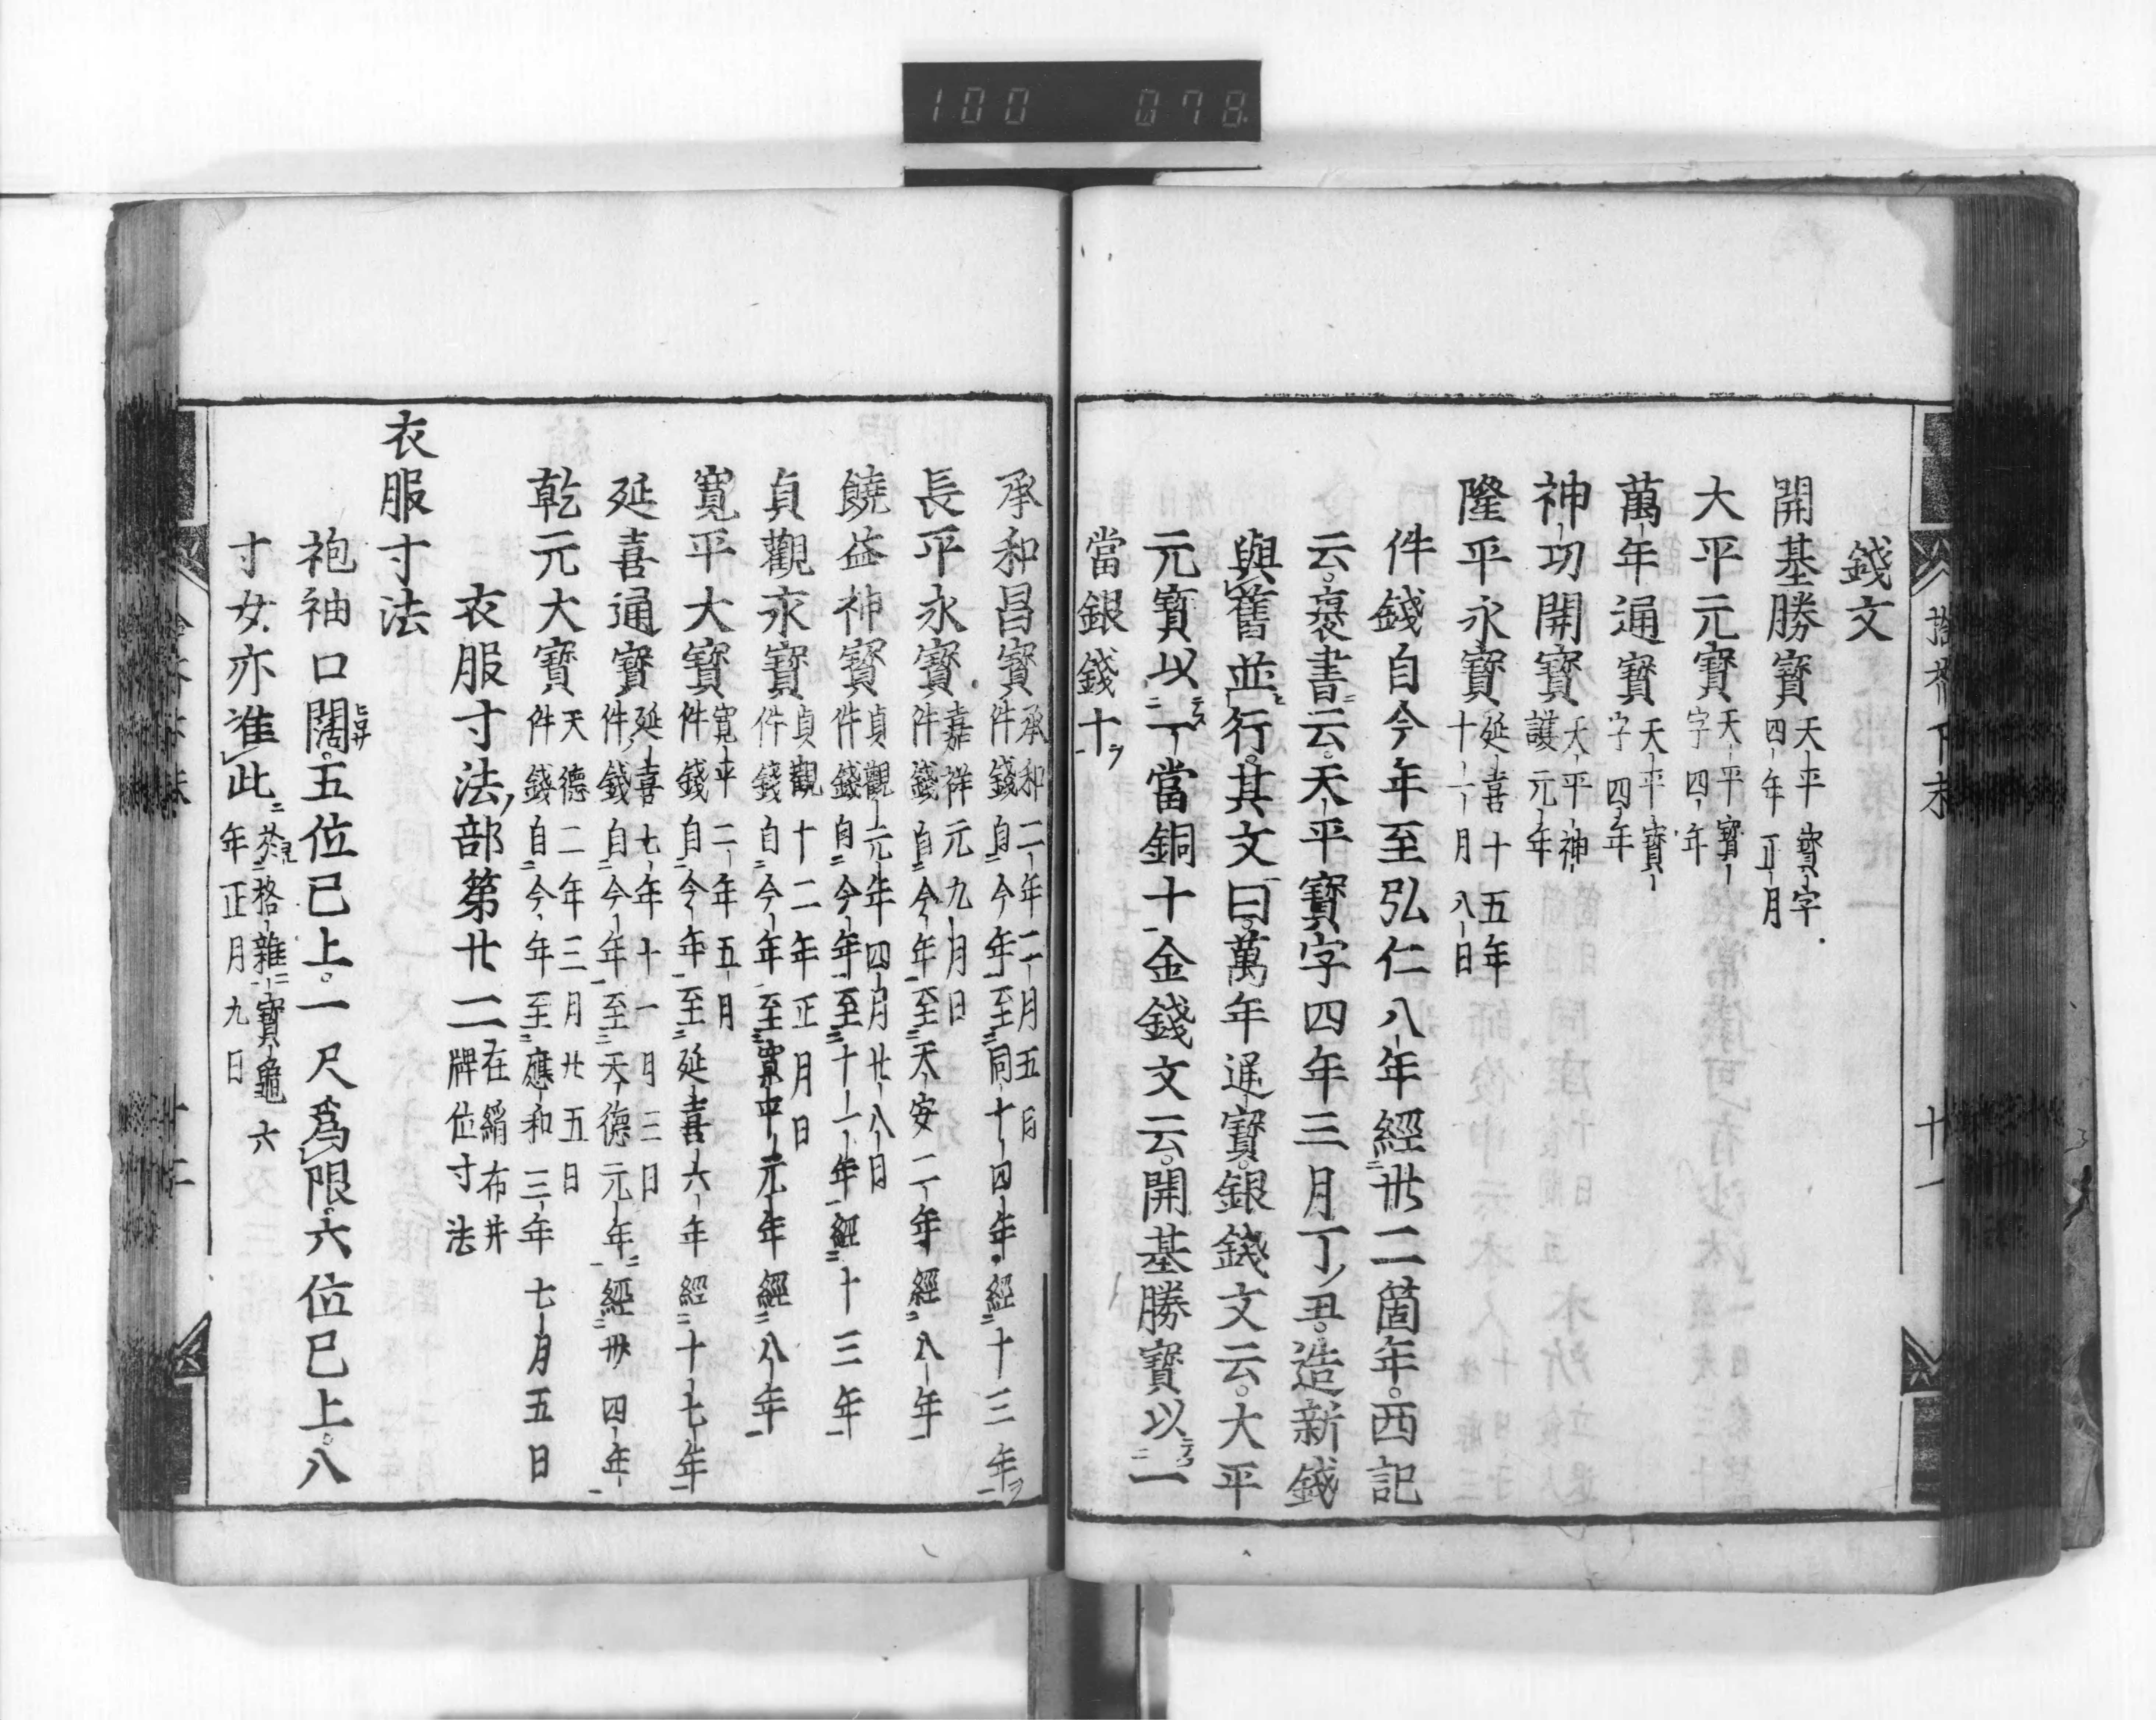 100 078
拾芥下末 十一
錢文
開基勝寶 天平寶字四年正月
大平元寶 天平寶字四年
萬年通寶 天平寶字四年
神功開寶 大平神護元年
隆平永寶 延喜十五年十一月八日
件錢自今年至弘仁八年經卅二箇年西記
云襃書云天平寶字四年三月丁丑造新錢
與舊並行其文曰萬年通寶銀錢文云大平
元寶以一當銅十金錢文云開基勝寶以一
當銀錢十
承和昌寶 承和二年二月五日件錢自今年至同十四年經十三年
長平永寶 嘉祥元九月日件錢自今年至天安二年經八年
饒益神寶 貞觀元年四月廿八日件錢自今年至十一年經十三年
貞觀永寶 貞觀十二年正月日件錢自今年至寬平元年經八年
寬平大寶 寬平二年五月件錢自今年至延喜六年經十七年
延喜通寶 延喜七年十一月三日件錢自今年至天德元年經卅四年
乾元大寶 天德二年三月廿五日件錢自今年至應和三年七月五日
衣服寸法部第廿二 在絹布并牌位寸法
衣服寸法
袍袖口闊五位已上一尺爲限六位已上八
寸女亦准此 見格雜寶龜六年正月九日